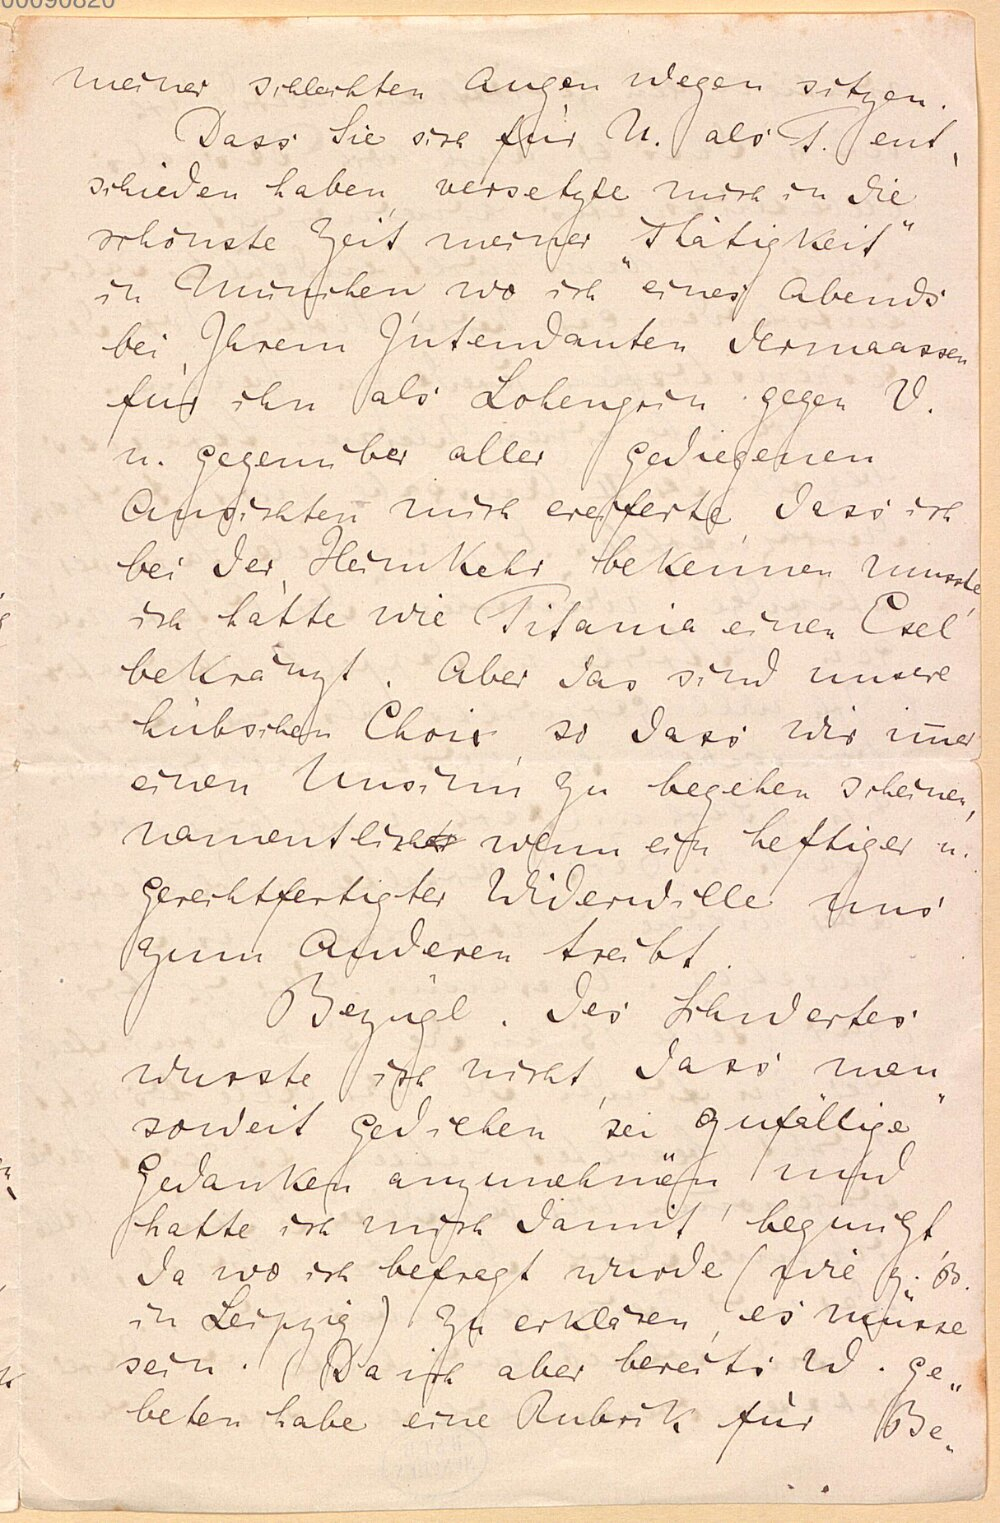 00090820
meiner schlechten Augen wegen sitzen.
Dass Sie sich für U. als T. ent„
schieden haben, versetzte mich in die
schönste Zeit meiner „Thätigkeit"
in München wo ich eines Abends
bei Ihrem Intendanten dermaassen
für ihn als Lohengrin gegen V.
u. gegenüber aller gediegenen
Ansichten mich ereiferte, dass ich
bei der Heimkehr bekennen musste,
ich hätte wie Titania einen Esel
bekränzt. Aber das sind unsere
hübschen Choix, so dass wir im̅er
einen Unsinn zu begehen scheinen,
namentlich wenn ein heftiger u.
gerechtfertigter Widerwille uns
zum Anderen treibt.
Bezügl. des Schwertes
wusste ich nicht, dass man
soweit gediehen sei „zufällige"
Gedanken anzunehmen und
hatte ich mich damit begnügt
da wo ich befragt wurde (wie z. B.
in Leipzig) zu erklären, es müsse
sein. Da ich aber bereits W. ge„
beten habe eine Rubrik für Be„